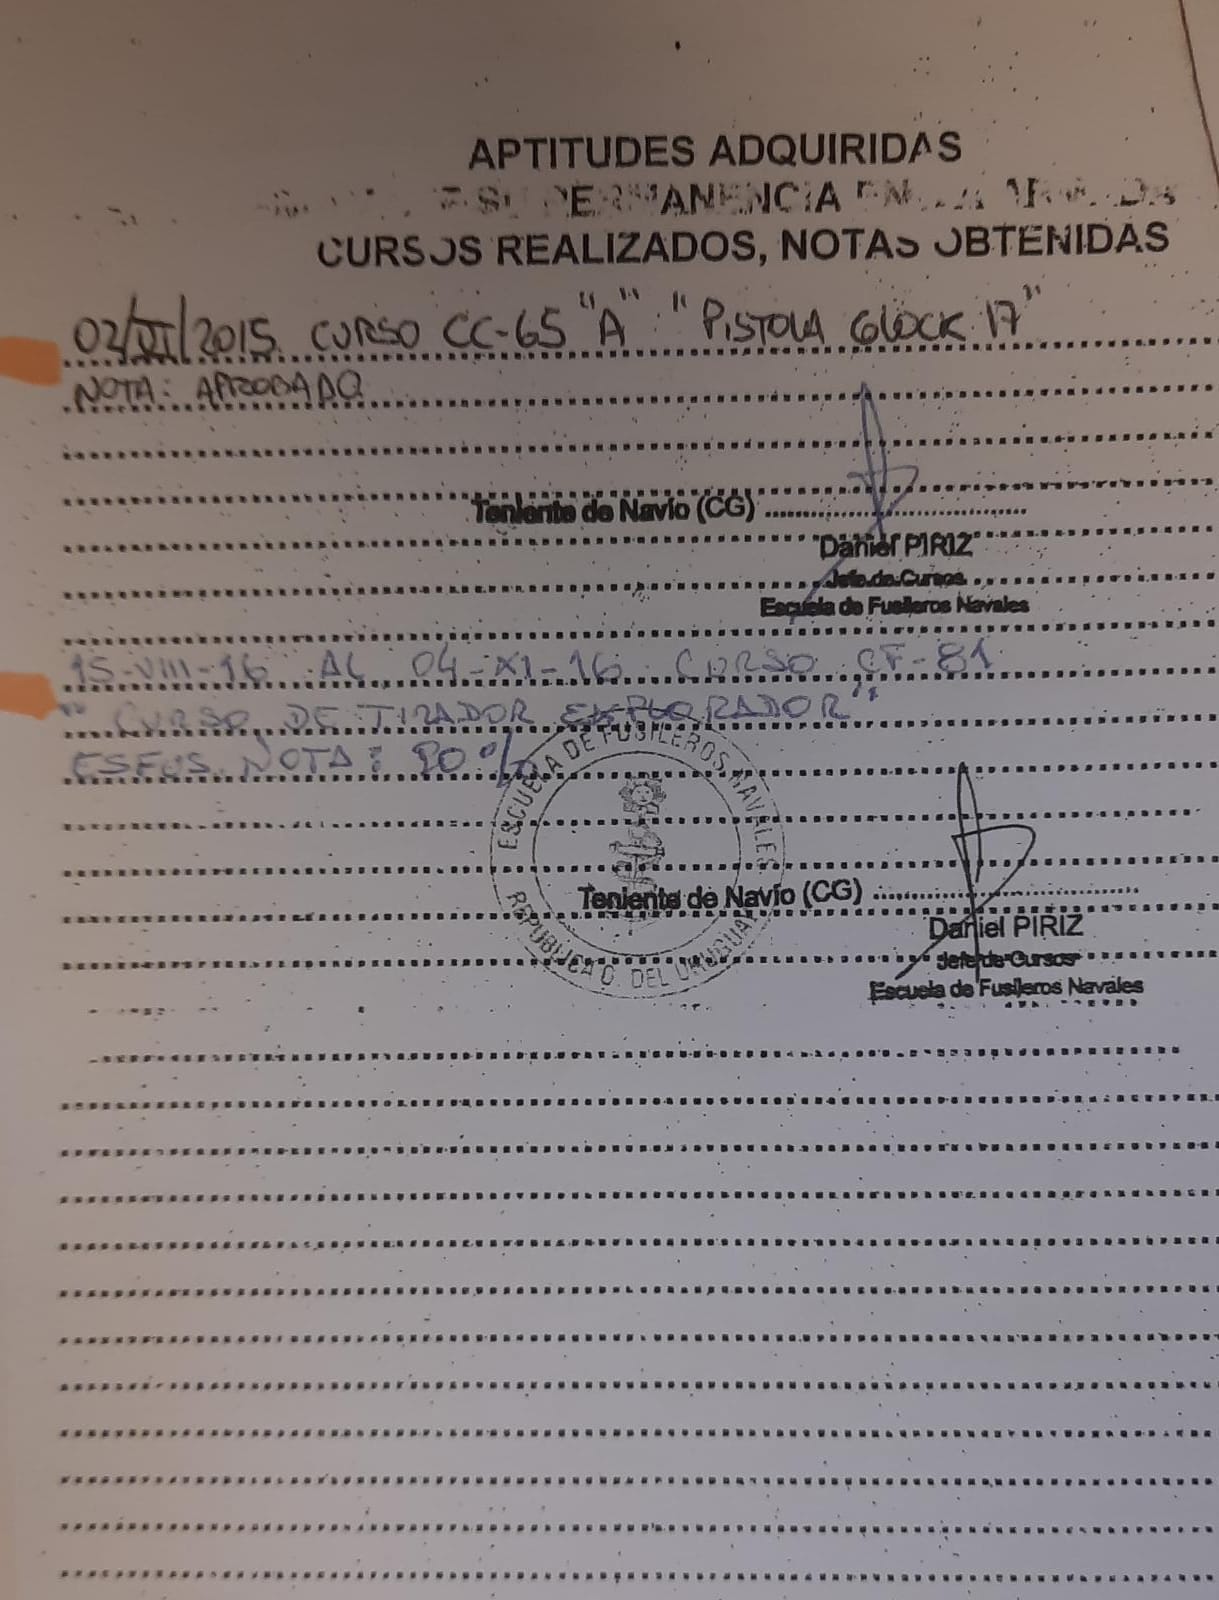 APTITUDES ADQUIRIDAS
SU PERMANENCIA EN LA ARMADA
CURSOS REALIZADOS, NOTAS OBTENIDAS
2015 CURSO CC-65 "A" "PISTOLA GLOCK 17"
NOTA: APROBADO
Teniente de Navío (CG)
Daniel PIRIZ
Jefe de Cursos
Escuela de Fusileros Navales
15-VIII-16 AL 04-XI-16 CURSO CF-81
"CURSO DE TIRADOR EXPLORADOR"
ESFUS NOTA: %
ESCUELA DE FUSILEROS NAVALES
REPUBLICA O. DEL URUGUAY
Teniente de Navío (CG)
Daniel PIRIZ
Jefe de Cursos
Escuela de Fusileros Navales